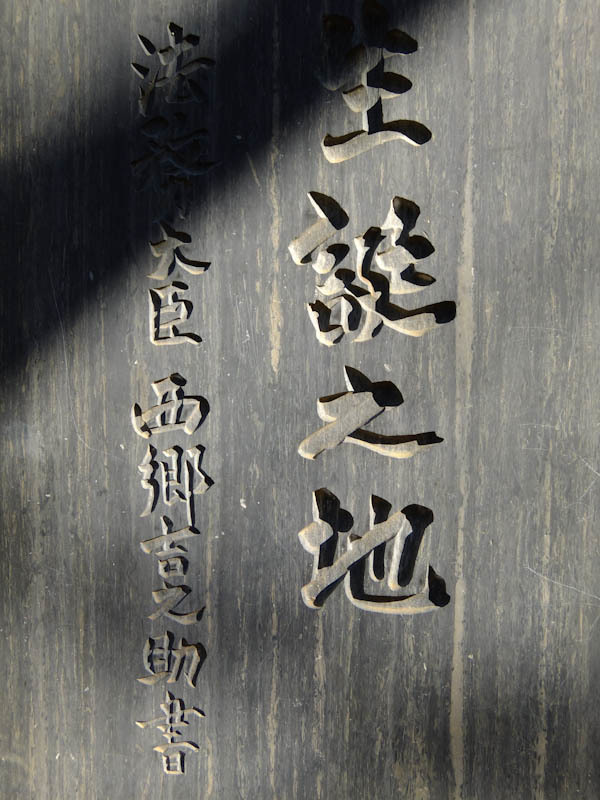 生誕之地
法務大臣 西郷吉之助書